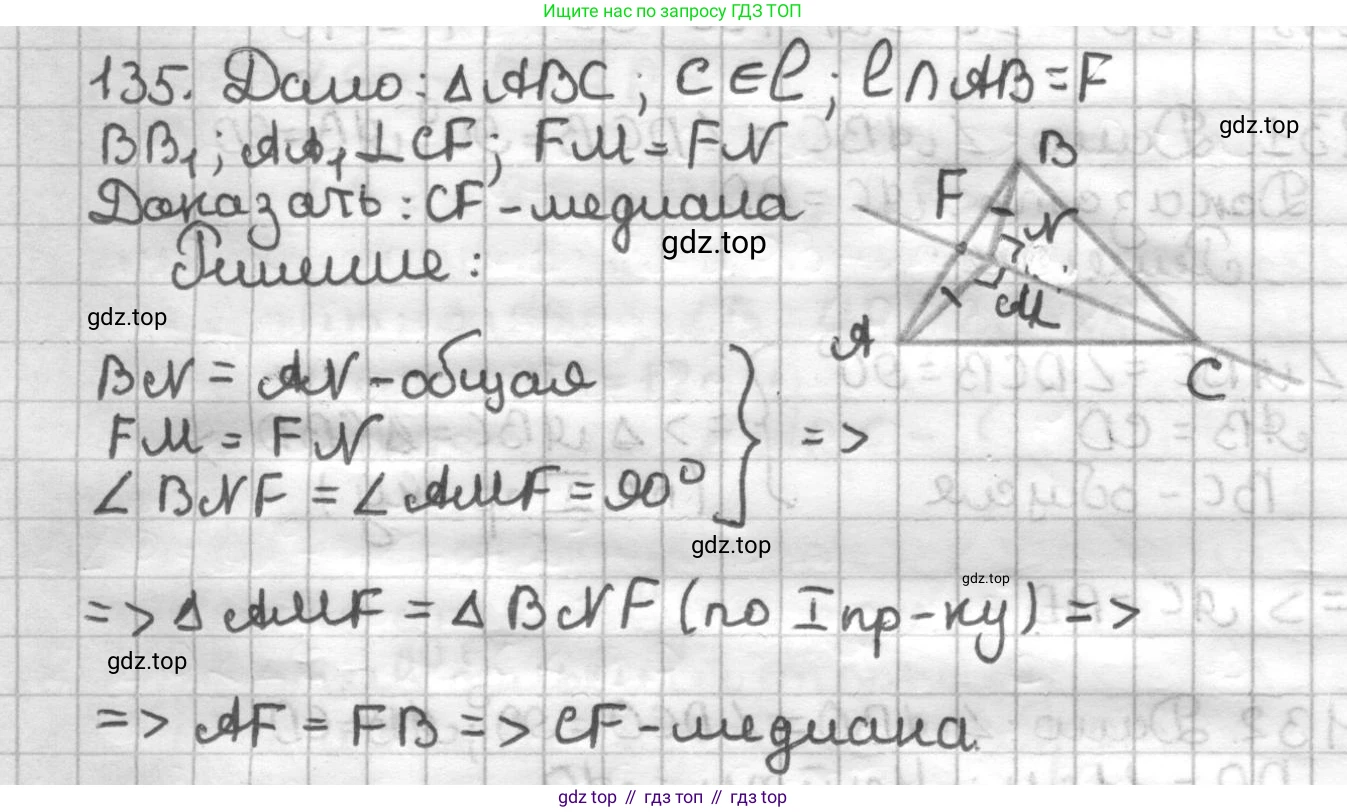 Ищите нас по запросу ГДЗ ТОП
135. Дано: △ABC; C∈l; l∩AB=F
gdz.top
BB₁; AA₁⊥CF; FM=FN
B
Доказать: CF-медиана
F
N
gdz.top
Решение:
M
gdz.top
A
C
BN = AN-общая
FM = FN
=>
∠BNF = ∠AMF = 90°
gdz.top
gdz.top
=> △AMF = △BNF (по I пр-ку) =>
gdz.top
=> AF = FB => CF-медиана.
gdz top // гдз топ // гдз top